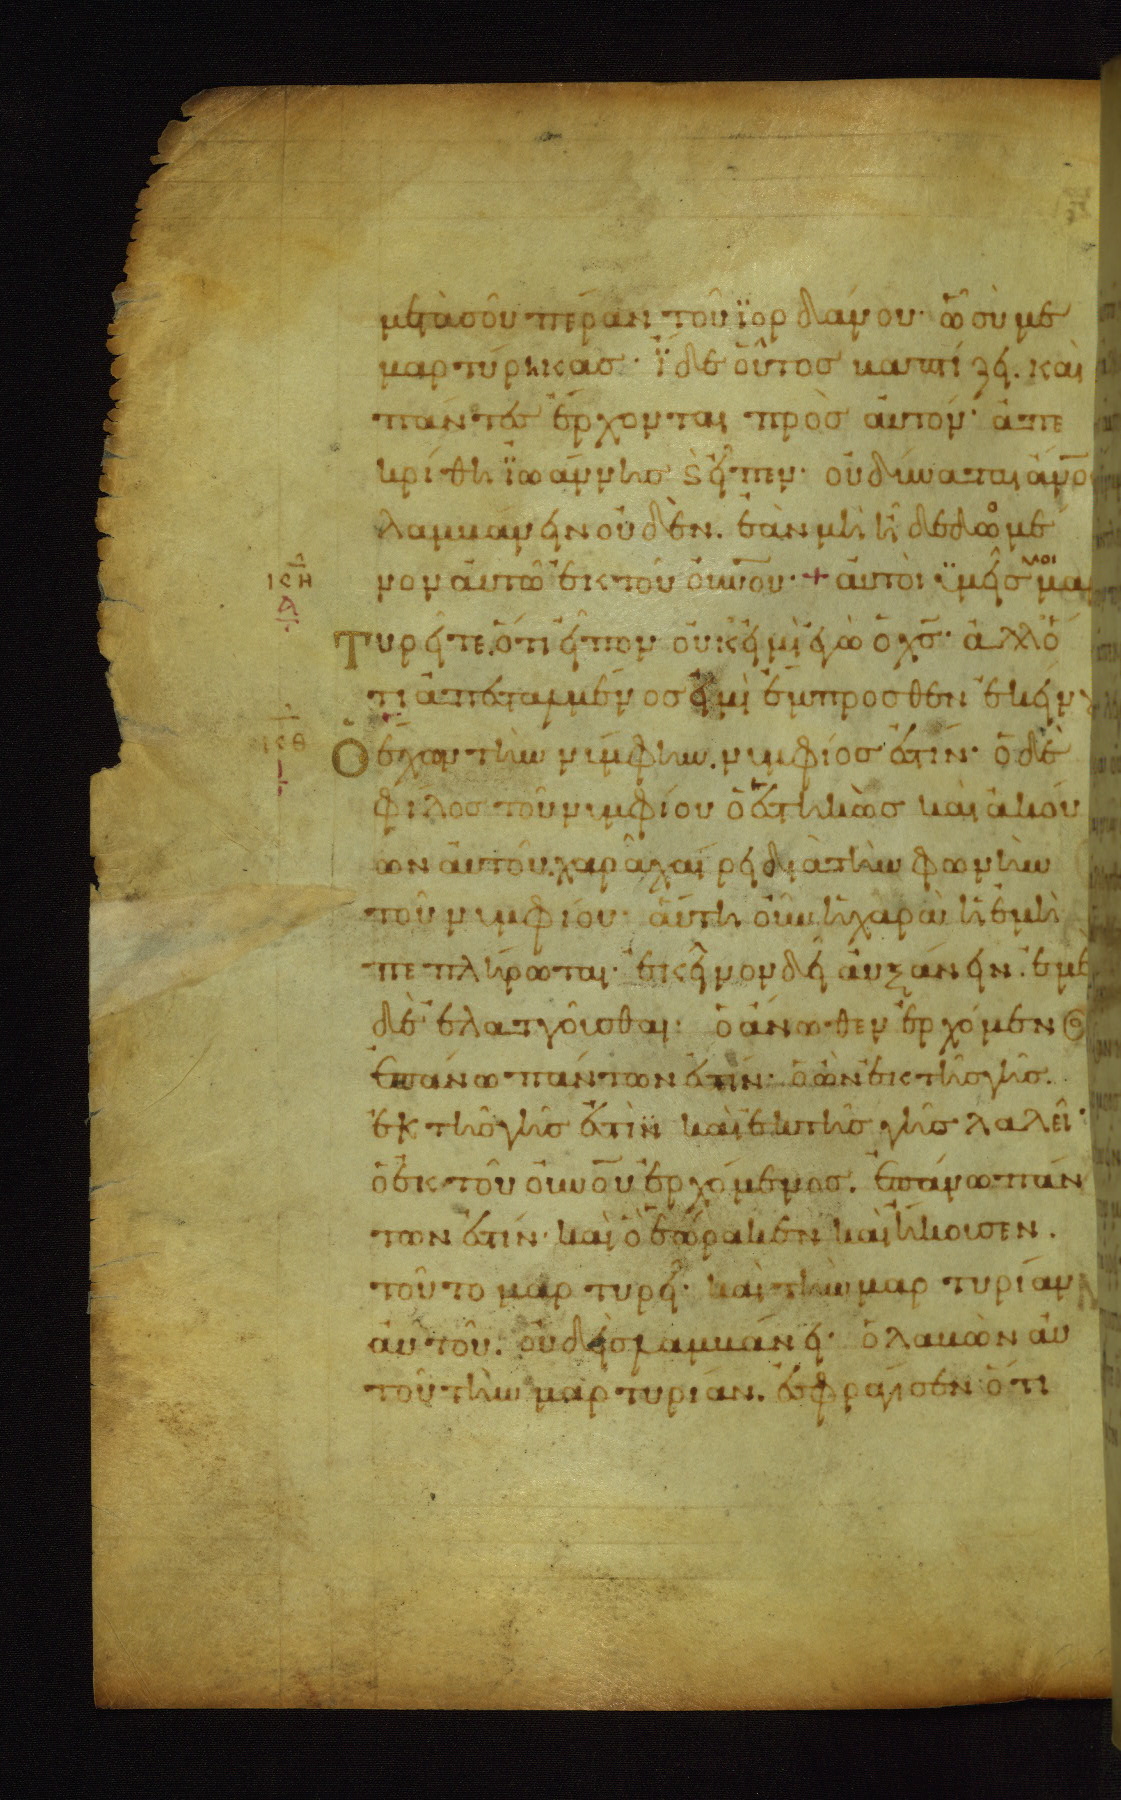 μετὰ σοῦ πέραν τοῦ ϊορδάνου· ὧ σὺ με
μαρτύρηκας· ἴδε οὗτος βαπτίζει. καὶ
πάντες ἔρχονται πρὸς αὐτόν· ἀπε
κρίθη ϊωάννης ϗ εἶπεν· οὐ δύναται ἄνο̅ς
λαμβάνειν οὐδὲν. ἐὰν μὴ ἦ δεδομέ
νον αὐτῶ ἐκ τοῦ οὐνου· + αὐτοὶ ϋμεῖς μοι μαρ
τυρεῖτε. ὅτι εἶπον οὐκ εἰμὶ ἐγὼ ὁ χς· ἀλλ' ὅ
τι ἀπεσταλμένος εἰμὶ ἔμπροσθεν ἐκείνου
Ὁ ἔχων τὴν νύμφην. νυμφίος ἐστίν· ὁ δὲ
φίλος τοῦ νυμφίου ὁ ἑστηκὼς καὶ ἀκού
ων αὐτοῦ. χαρᾶ χαίρει διὰ τὴν φωνὴν
τοῦ νυμφίου· αὕτη οὖν ἡ χαρὰ ἡ ἐμὴ
πεπλήρωται· ἐκεῖνον δεῖ αὐξάνειν. ἐμὲ
δὲ ἐλαττοῦσθαι· ὁ ἄνωθεν ἐρχόμενος
ἐπάνω πάντων ἐστίν· ὁ ὢν ἐκ τῆς γῆς.
ἐκ τῆς γῆς ἐστὶν καὶ ἐκ τῆς γῆς λαλεῖ·
ὁ ἐκ τοῦ οὐνου ἐρχόμενος. ἐπάνω πάν
των ἐστίν· καὶ ὃ ἑώρακεν καὶ ἤκουσεν.
τοῦτο μαρτυρεῖ· καὶ τὴν μαρτυρίαν
αὐτοῦ. οὐδεὶς λαμβάνει· ὁ λαβὼν αὐ
τοῦ τὴν μαρτυρίαν. ἐσφράγισεν ὅτι
κη
Α
κθ
Γ